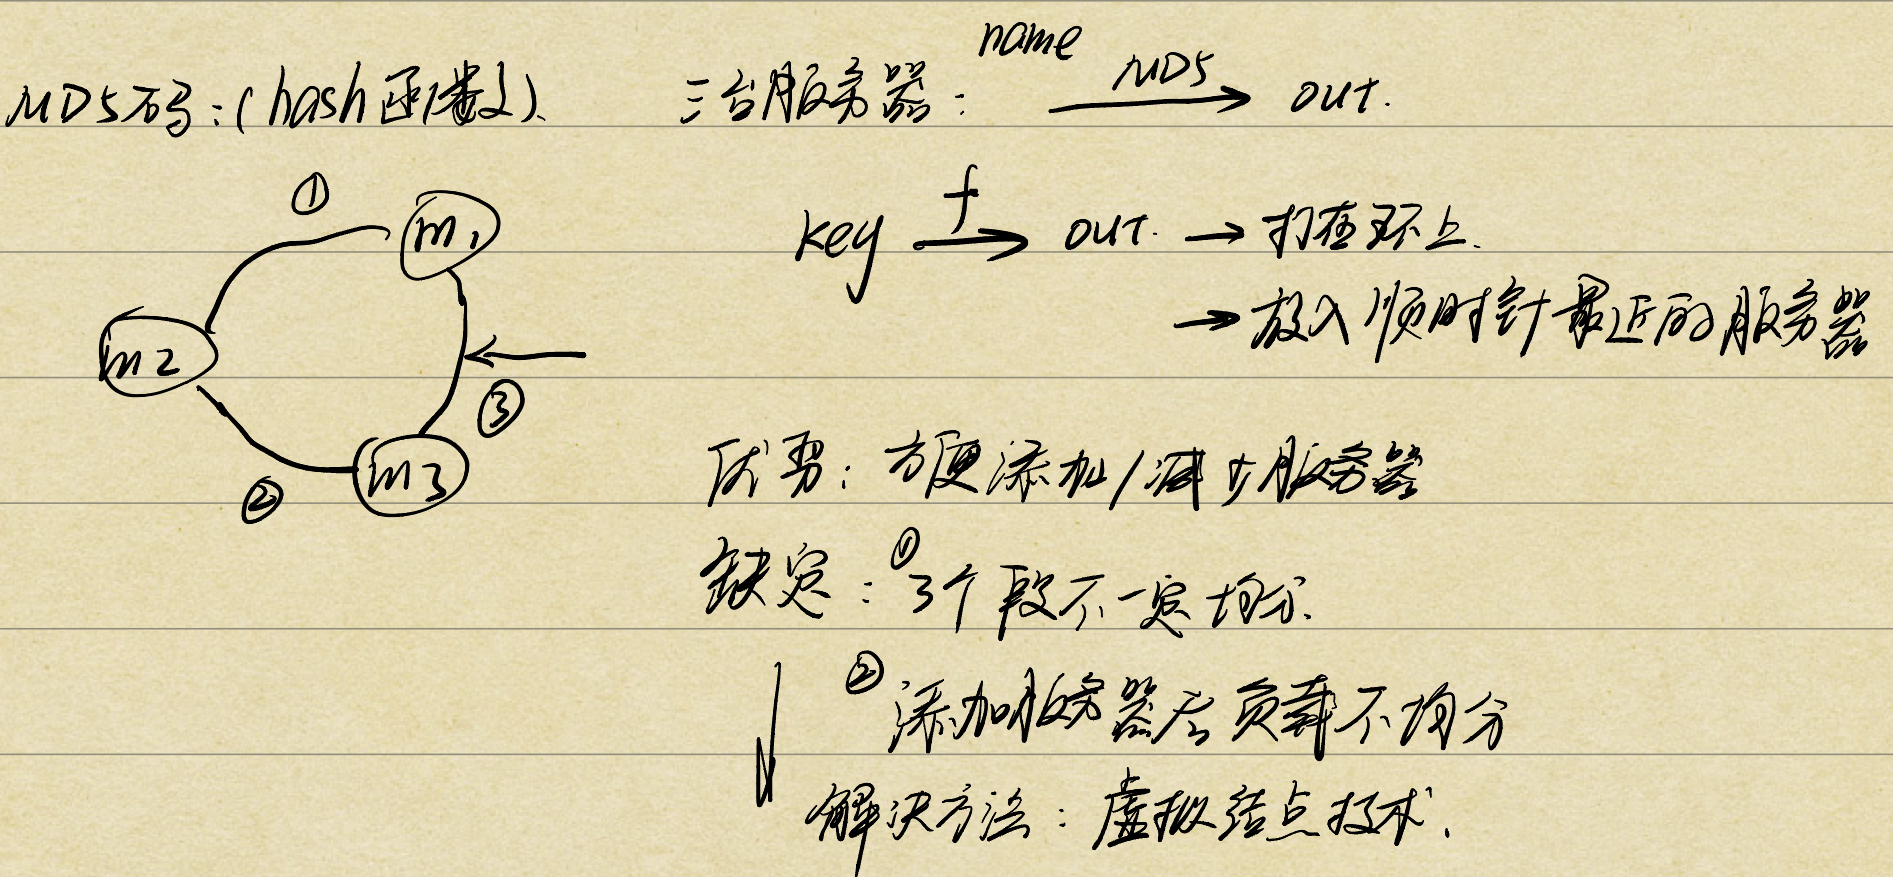 name
MD5码:(hash函数).
三台服务器: MD5 out.
①
m1
key f out. → 打在环上.
→ 放入顺时针最近的服务器
m2
③
m3
②
优势: 方便添加/减少服务器
缺定: ①3个段不一定均分.
②添加服务器后负载不均分
解决方法: 虚拟结点技术.